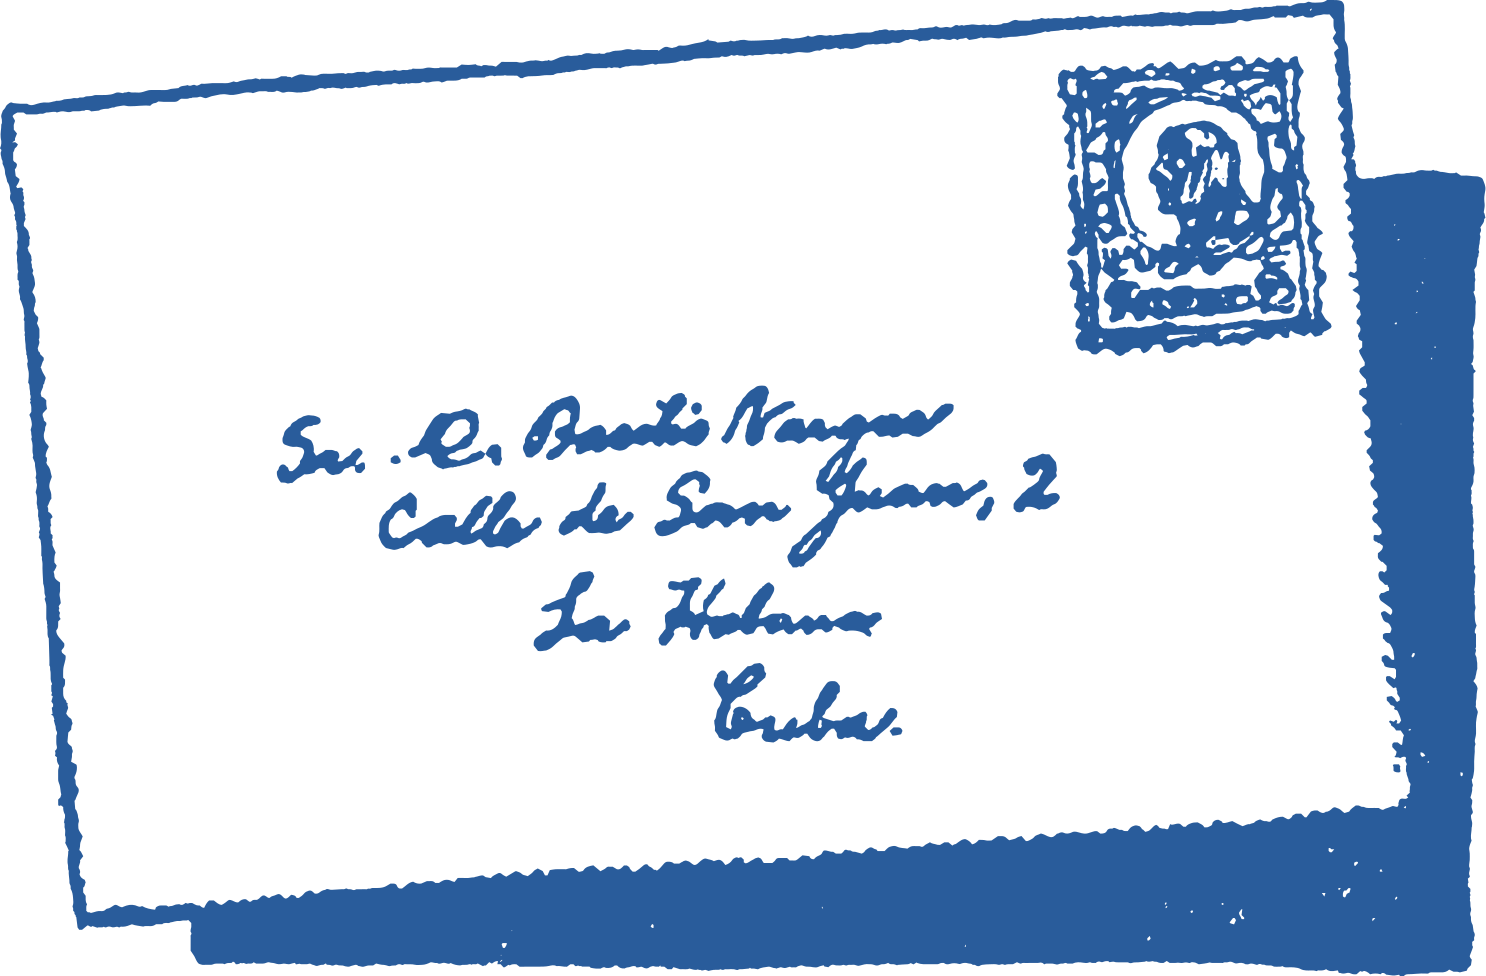 Sr. D. Basilio Vargas
Calle de San Juan, 2
La Habana
Cuba.